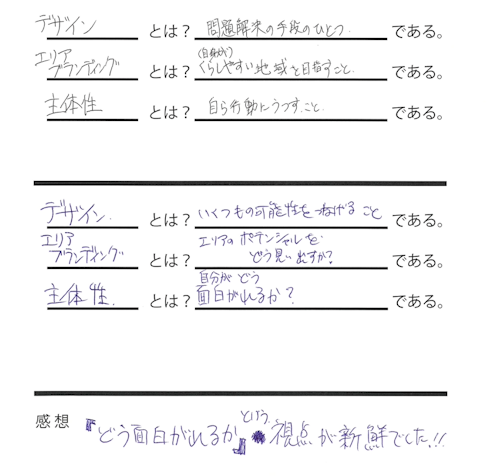 デザイン とは？ 問題解決の手段のひとつ. である。
エリアブランディング とは？ (自身が)くらしやすい地域を目指すこと. である。
主体性 とは？ 自ら行動にうつすこと. である。
デザイン. とは？ いくつもの可能性をつなげること である。
エリアブランディング とは？ エリアのポテンシャルをどう見い出すか? である。
主体性. とは？ 自分がどう面白がれるか? である。
感想 『どう面白がれるか』という視点が新鮮でした!!